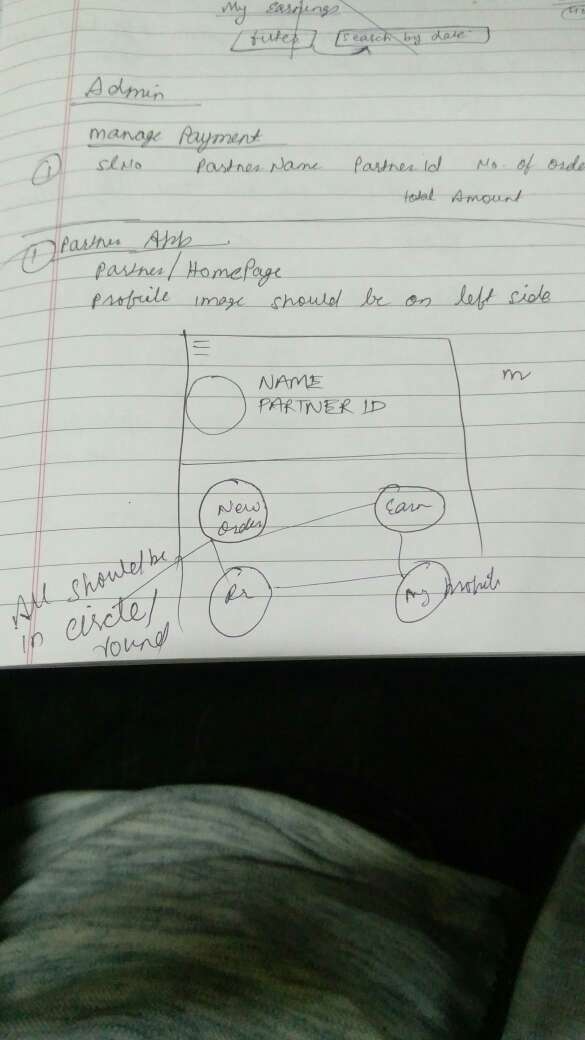 My Earnings
filter search by date
Admin
manage Payment
① Sl No Partner Name Partner Id No. of orde
total Amount
① Partner App
Partner/HomePage
profile image should be on left side
NAME
PARTNER ID
m
New
order
Earn
All should be
in circle/
round
My profile